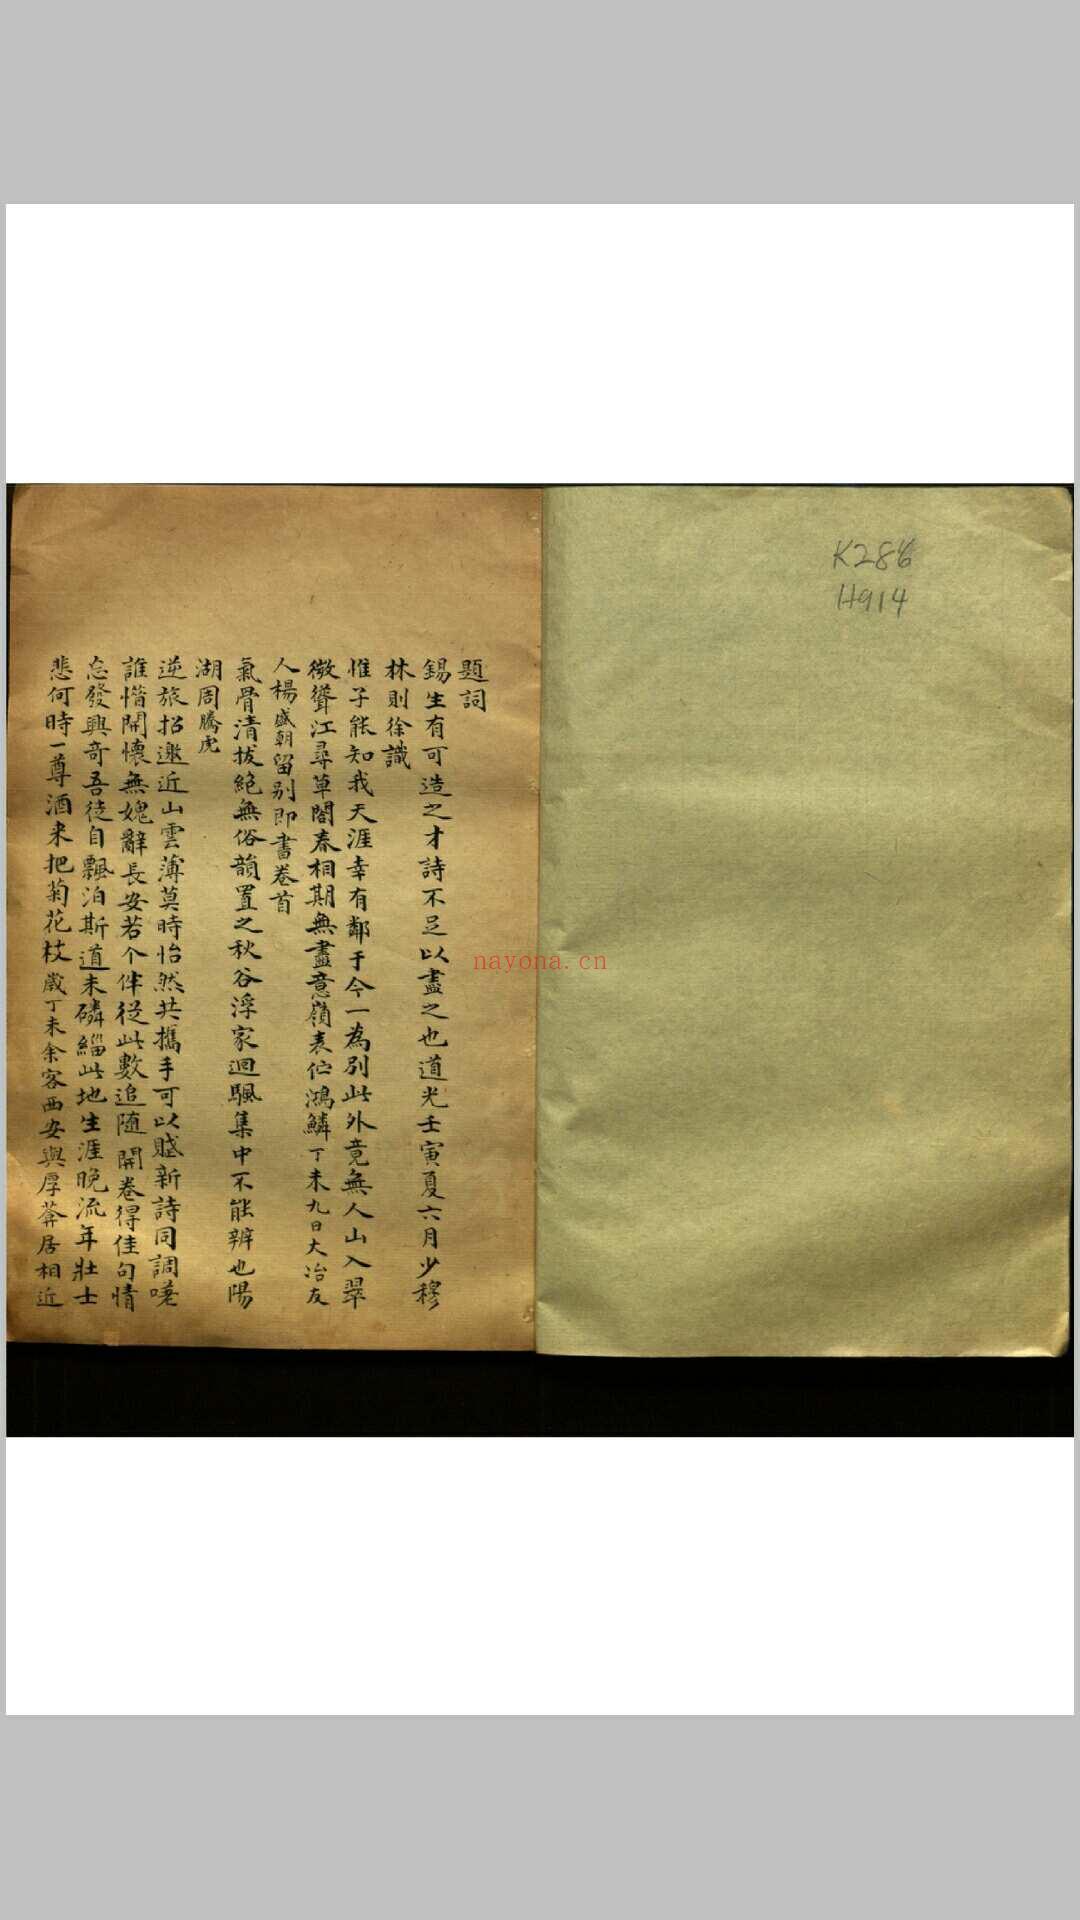 K286
H914
題詞
錫生有可造之才詩不足以盡之也道光壬寅夏六月少穆
林則徐識
惟子能知我天涯幸有鄰于今一為別此外竟無人山入翠
微聳江尋草閣春相期無盡意嶺表伫鴻鱗丁未九日大冶友
人楊盛朝留別即書卷首
氣骨清拔絕無俗韻置之秋谷浮家迴颿集中不能辨也陽
湖周騰虎
逆旅招邀近山雲薄莫時怡然共攜手可以賦新詩同調嗟
誰惜開懷無媿辭長安若个伴從此數追隨開卷得佳句情
忘發興奇吾徒自飄泊斯道未磷緇此地生涯晚流年壯士
悲何時一尊酒来把菊花杖歲丁未余客西安與厚菴居相近
nayona.cn